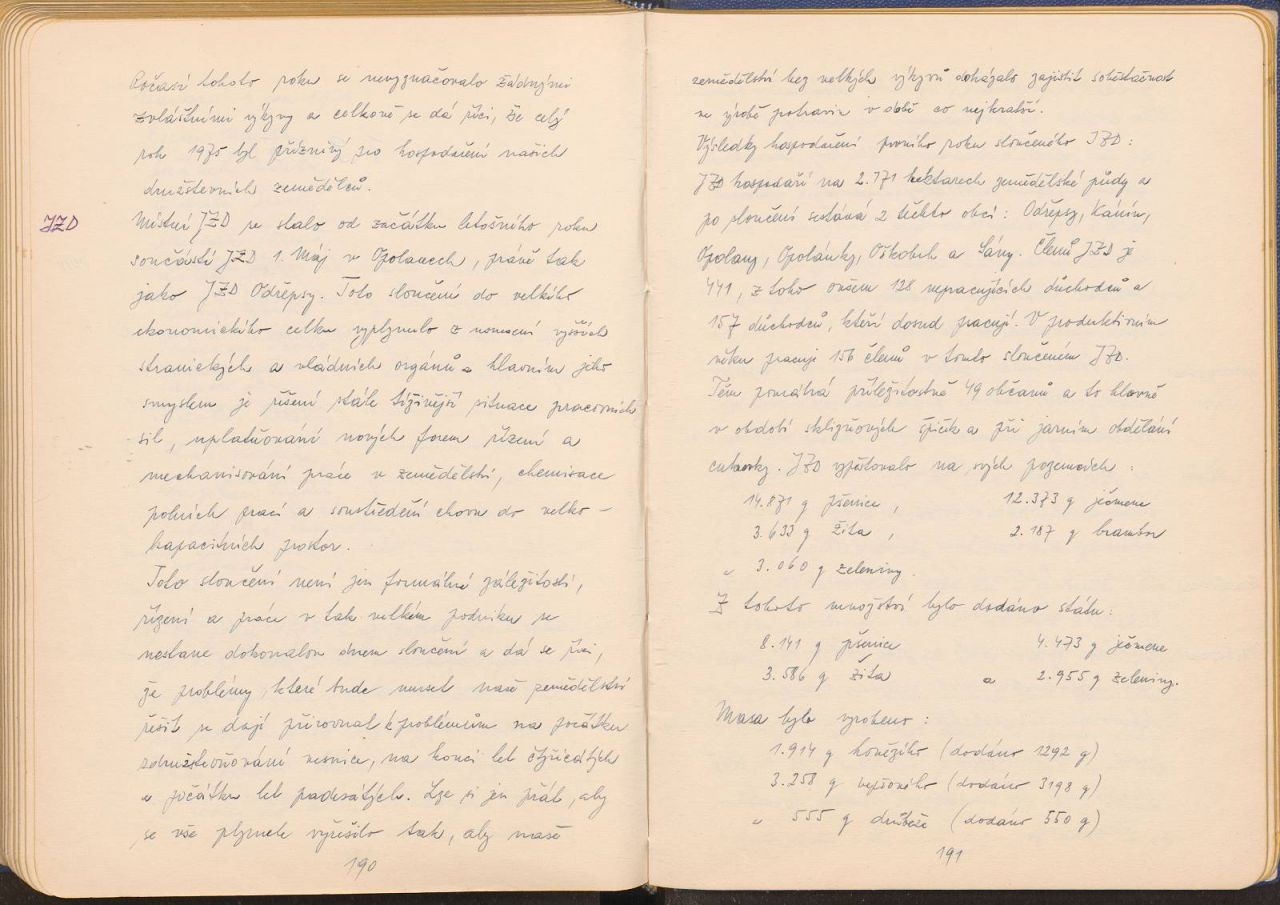 Počasí tohoto roku se nevyznačovalo žádnými
zvláštními výkyvy a celkově se dá říci, že celý
rok 1975 byl příznivý pro hospodaření našich
družstevních zemědělců.
JZD
Místní JZD se stalo od začátku letošního roku
součástí JZD 1. Máj v Opolanech, právě tak
jako JZD Odřepsy. Toto sloučení do velkého
ekonomického celku vyplynulo z usnesení vyšších
stranických a vládních orgánů a hlavním jeho
smyslem je řešení stále tíživější situace pracovních
sil, uplatňování nových forem řízení a
mechanisování práce v zemědělství, chemisace
polních prací a soustředění chovu do velko-
kapacitních prostor.
Toto sloučení není jen formální záležitostí,
řízení a práce v tak velkém podniku se
nestane dokonalou dnem sloučení a dá se říci,
že problémy, které bude muset naše zemědělství
řešit se dají přirovnat k problémům na počátku
združstevňování vesnice, na konci let čtyřicátých
a počátku let padesátých. Lze si jen přát, aby
se vše plynule vyřešilo tak, aby naše
190
zemědělství bez velkých výkyvů dokázalo zajistit soběstačnost
ve výrobě potravin v době co nejkratší.
Výsledky hospodaření prvního roku sloučeného JZD:
JZD hospodaří na 2.771 hektarech zemědělské půdy a
po sloučení sestává z těchto obcí: Odřepsy, Kánín,
Opolany, Opolánky, Oškobrh a Sány. Členů JZD je
441, z toho ovšem 128 nepracujících důchodců a
157 důchodců, kteří dosud pracují. V produktivním
věku pracuje 156 členů v tomto sloučeném JZD.
Těm pomáhá příležitostně 49 občanů a to hlavně
v období sklizňových špiček a při jarním obdělání
cukrovky. JZD vypěstovalo na svých pozemcích:
14.871 q pšenice, 12.373 q ječmene
3.633 q žita, 2.187 q brambor
a 3.060 q zeleniny.
Z tohoto množství bylo dodáno státu:
8.141 q pšenice 4.473 q ječmene
3.586 q žita a 2.955 q zeleniny.
Masa bylo vyrobeno:
1.914 q hovězího (dodáno 1292 q)
3.258 q vepřového (dodáno 3198 q)
a 555 q drůbeže (dodáno 550 q)
191